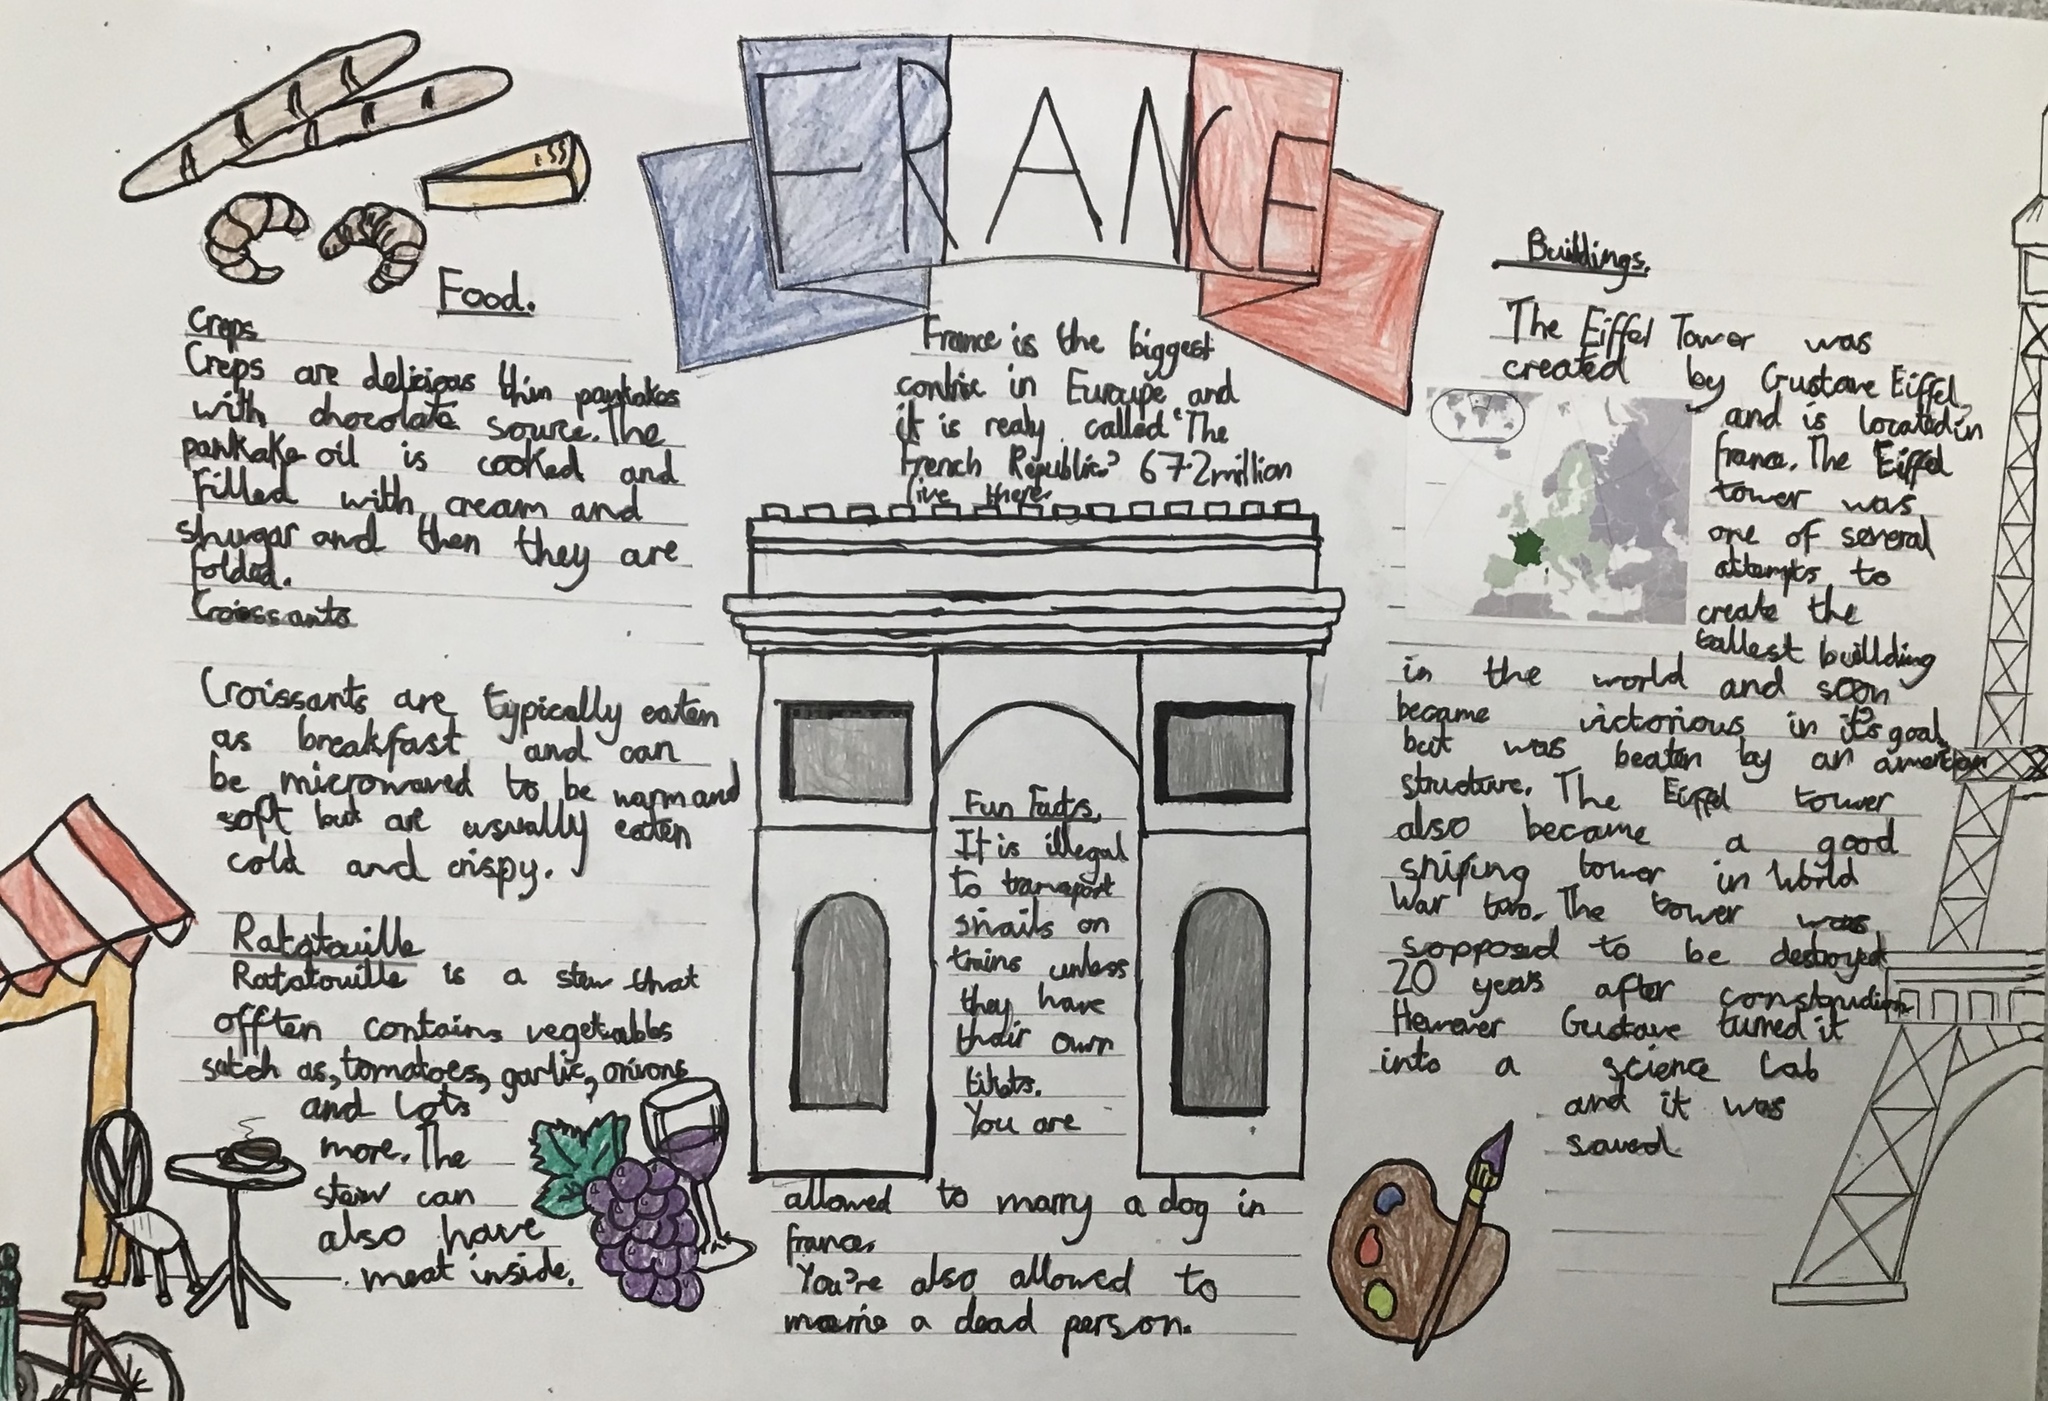 FRANCE
Food.
Creps
Creps are delicious thin pankakes
with chocolate source. The
pankake oil is cooked and
filled with cream and
shugar and then they are
folded.
Croissants
Croissants are typically eaten
as breakfast and can
be microwaved to be warm and
soft but are usually eaten
cold and crispy.
Ratatouille
Ratatouille is a stew that
offten contains vegetables
satch as, tomatoes, garlic, onions
and lots
more. The
stew can
also have
meat inside.
France is the biggest
in Euroupe and
it is realy called "The
French Republic" 67.2 million
live there.
Fun Facts.
It is illegal
to transport
snails on
trains unless
they have
their own
You are
allowed to marry a dog in
france.
You're also allowed to
a dead person.
Buildings.
The Eiffel Tower was
created by Gustave Eiffel,
and is located in
france. The Eiffel
tower was
one of several
attempts to
create the
tallest buillding
in the world and soon
became victorious in it's goal,
but was beaten by an american
structure. The Eiffel tower
also became a good
sniping tower in World
War two. The tower was
sopposed to be destroyed
20 years after
However Gustave turned it
into a science lab
and it was
saved